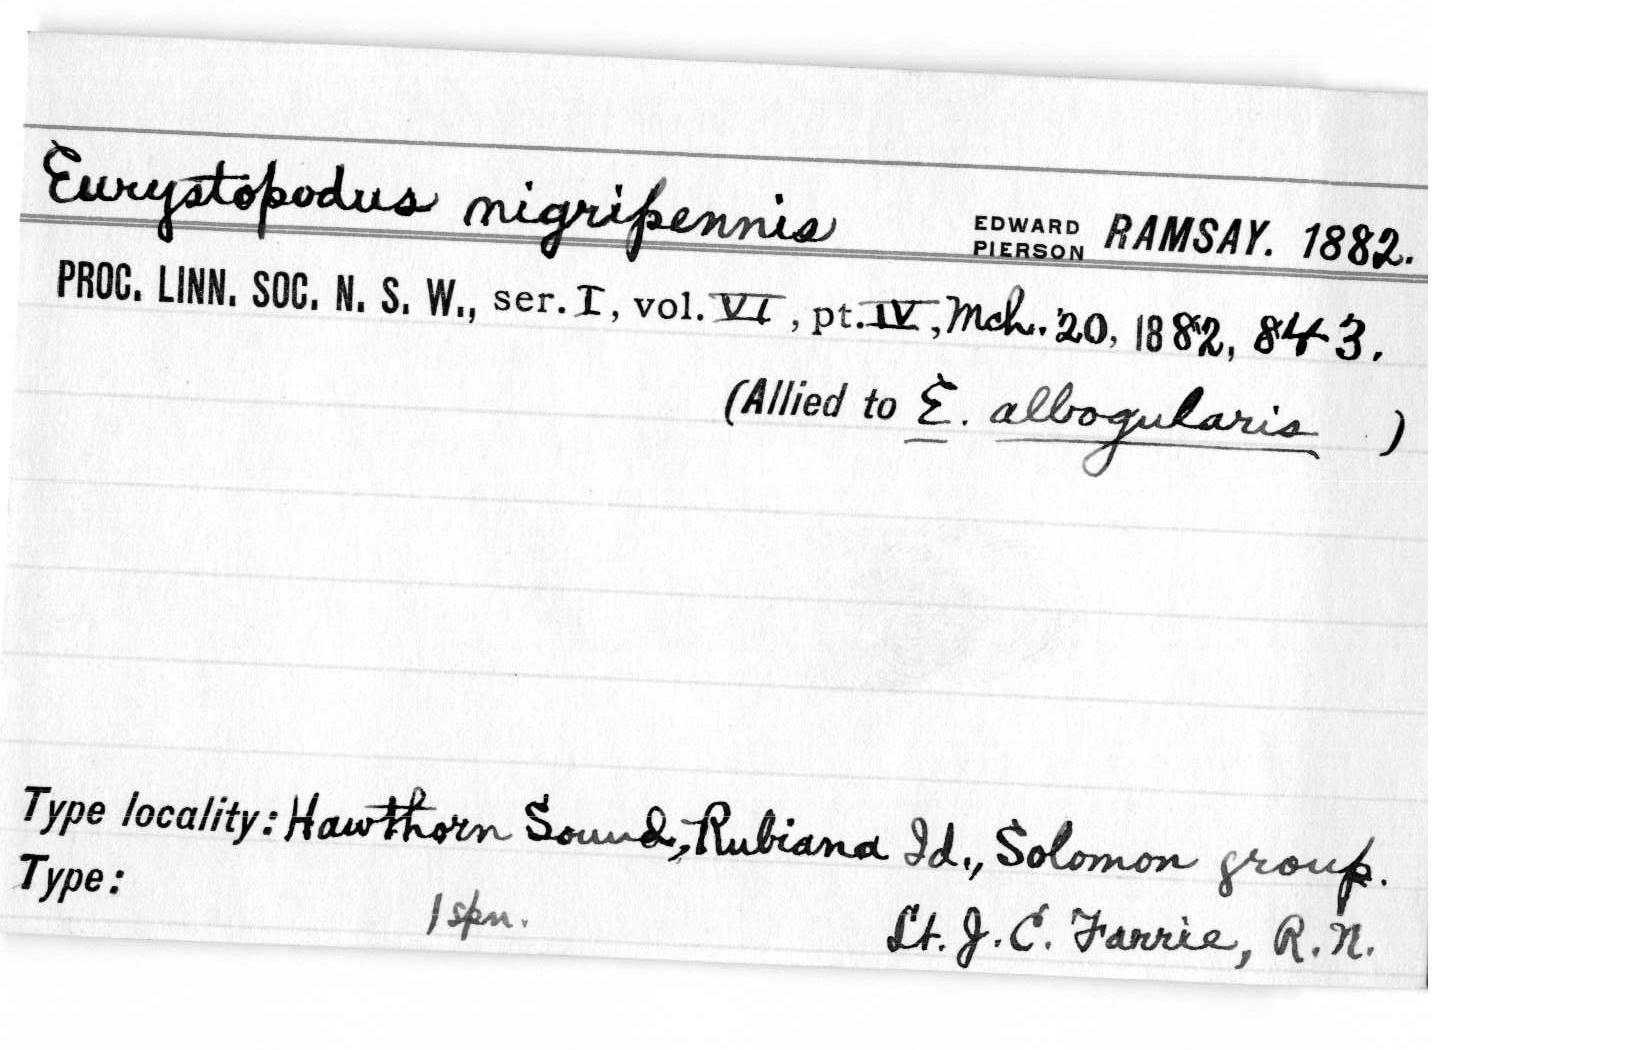 Eurystopodus nigripennis EDWARD PIERSON RAMSAY. 1882.
PROC. LINN. SOC. N. S. W., ser. I, vol. VI, pt. IV, Mch. 20, 1882, 843.
(Allied to E. albogularis )
Type locality: Hawthorn Sound, Rubiana Id., Solomon group.
Type: 1 spn. Lt. J. C. Farrie, R. N.